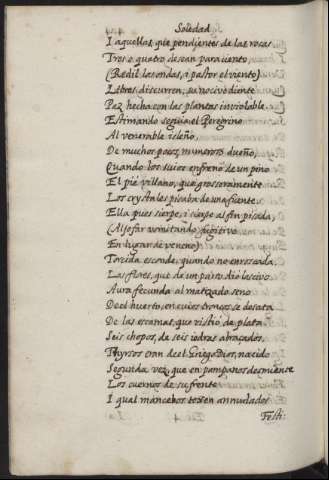 Soledad
I aquellas, que pendientes de las rocas
Tres, o quatro desean para ciento,
(Redil las ondas, i pastor el viento)
Libres discurren, su nocivo diente
Paz hecha con las plantas inviolable.
Estimando seguia el Peregrino
Al venerable isleño,
De muchos pocos numeroso dueño,
Quando los suios enfrenò de un pino
El piè villano, que groseramente
Los crystales pisaba de una fuente.
Ella pues sierpe, i sierpe al fin pisada,
(Aljofar vomitando fugitivo
En lugar de veneno)
Torcida esconde, quando no enroscada,
Las flores, que de un parto diò lascivo
Aura fecunda al matizado seno
De el huerto, en cuios troncos se desata
De las escamas, que vistiò de plata.
Seis chopos, de seis iedras abraçados,
Thyrsos eran de el Griego Dios, nacido
Segunda vez, que en pampanos desmiente
Los cuernos de su frente.
I qual mancebos texen annudados
Festi-